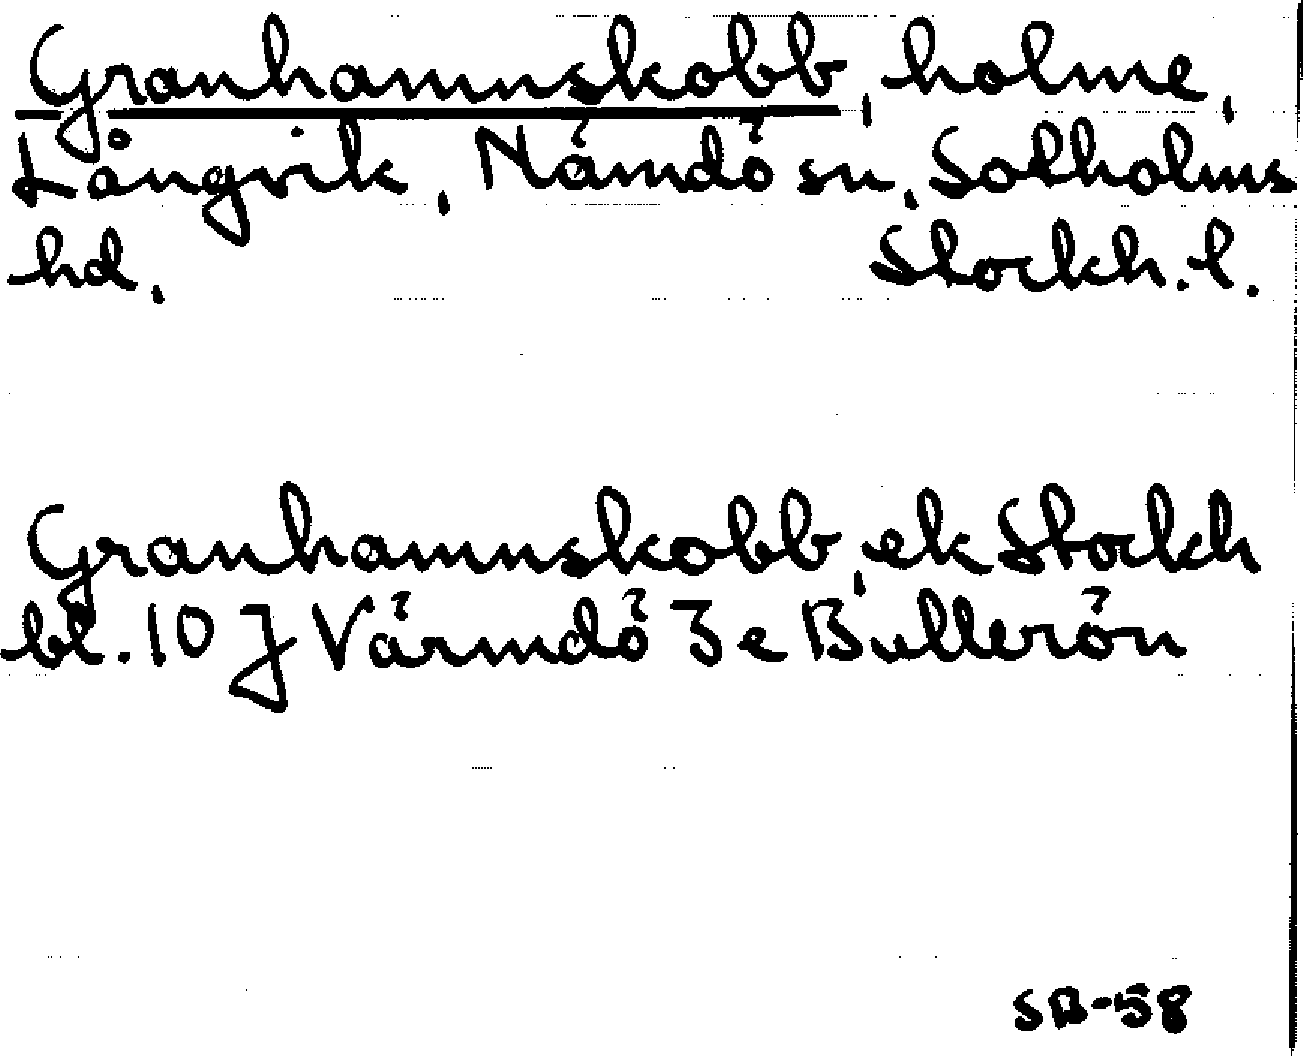 Granhamnskobb, holme,
Långvik, Nämdö sn, Sotholms
hd. Stockh. l.
Granhamnskobb, ek Stockh
bl. 10 J Värmdö 3 e Bullerön
SB-58